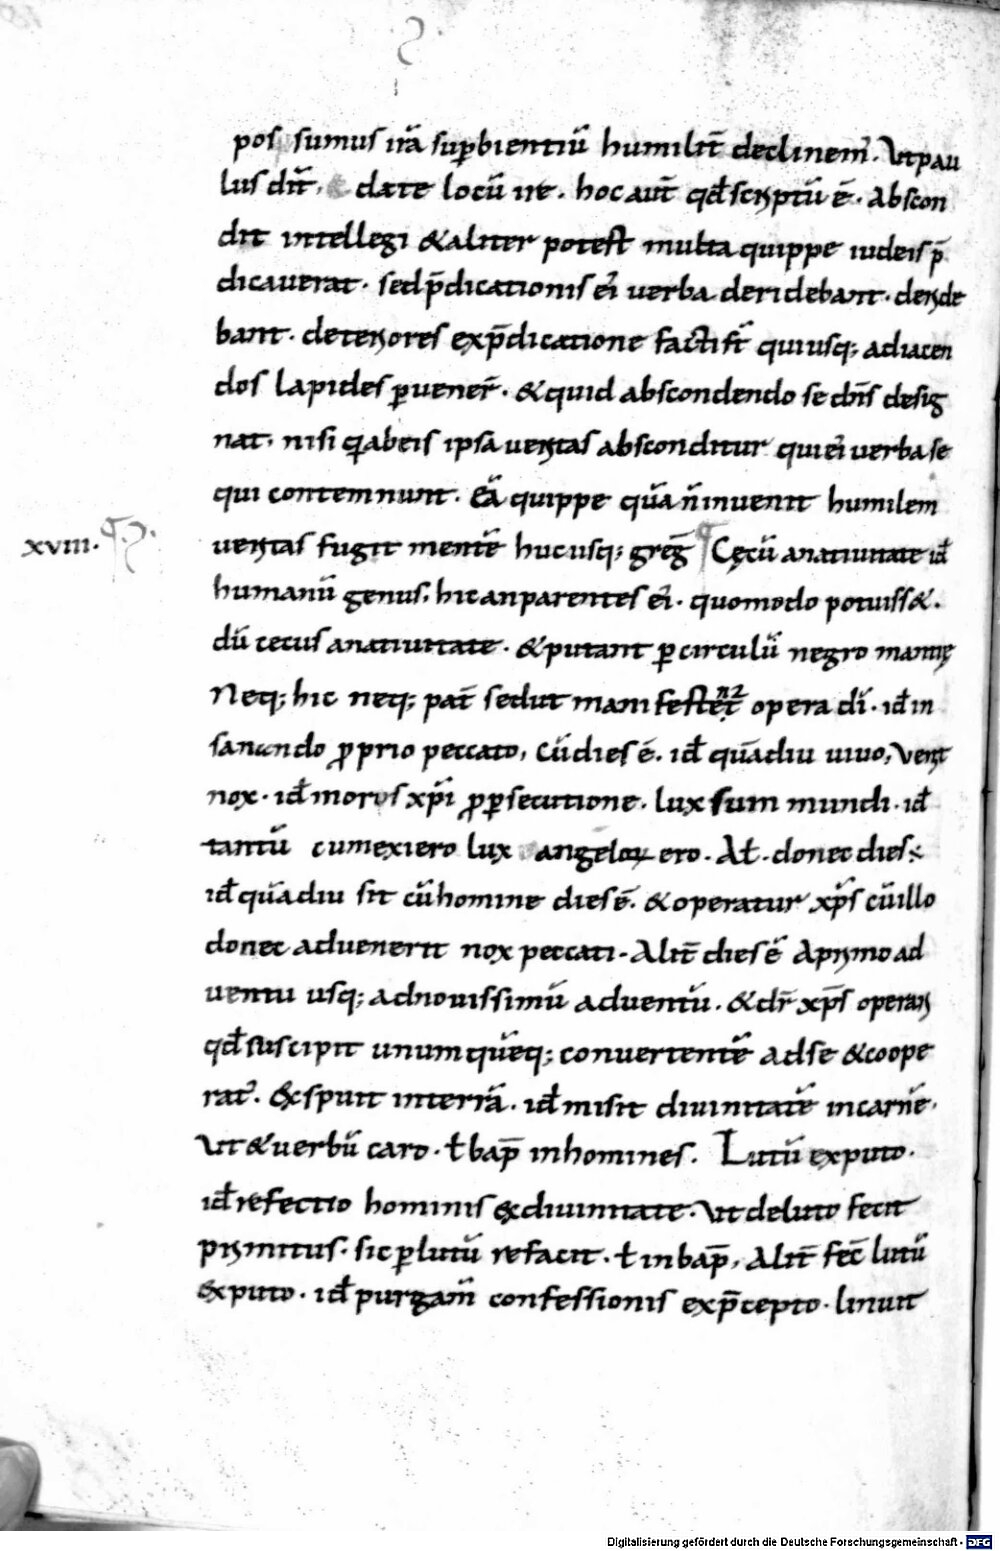 pos sumus irã sup̱bientiũ humilit̃ declinem᷑. Ut pau
lus dix̃. date locũ irę. hoc aut̃ qđ scriptũ ẽ. Abscon
dit intellegi & aliter potest multa quippe iudeis p̃
dicauerat. sed p̃dicationis ei᷑ uerba deridebant. deride
bant. deteriores exp̃dicatione facti st̃ quiusq; ad iacen
dos lapides p̱uener̃. & quid abscondendo se dñs desig
nat. nisi q̇ abeis ipsa ueritas absconditur qui ei᷑ uerba se
qui contemnunt. Eã quippe quã ñ inuenit humilem
xviii. ueritas fugit mentẽ hucusq; greg̃ Cęcũ anatiuitate iđ
humanũ genus. hic an parentes ei᷑. quomodo potuiss&.
dũ cecus anatiuitate. & putant p̱ circulũ negromantię
Neq; hic neq; pat̃ sed ut manifestet̃ opera di᷑. iđ in
sanando p̱prio peccato, cũ dies ẽ. iđ quãdiu uiuo, Venit
nox. iđ mors xp̃i p̱ p̱secutione. lux sum mundi. iđ
tantũ cum exiero lux angeloꝝ ero. At̃. donec dies ẽ
iđ quãdiu sit cũ homine dies ẽ. & operatur xp̃s cũ illo
donec aduenerit nox peccati. Alit̃ dies ẽ Aprimo ad
uentu usq; ad nouissimũ aduentũ. & dr̃ xp̃s operari
qđ suscipit unumquẽq; conuertentẽ adse & coope
rat᷑. &spuit interrã. iđ misit diuinitatẽ incarnẽ.
Ut & uerbũ caro. ł bap̃ inhomines. Lutũ exputo.
iđ refectio hominis exdiuinitate. Ut deluto fecit
primitus. sic p̱ lutũ refacit. ł in bap̃. Alit̃ fec̃ lutũ
exputo. iđ purgam̃ confessionis exp̃cepto. linuit
Digitalisierung gefördert durch die Deutsche Forschungsgemeinschaft - DFG